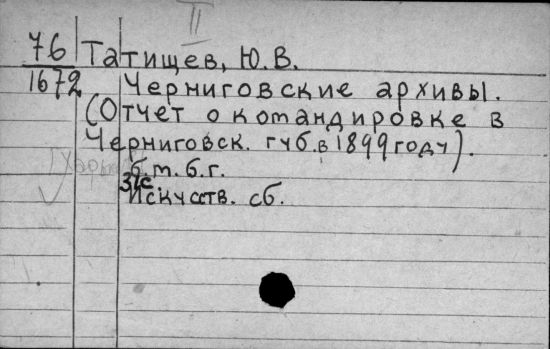 II
76 Татищев, Ю. В.
1672 Черниговские архивы.
(Отчет о командировке в
Черниговск. губ. в 1899 году).
б. т. б. г.
31с.
Искусств. сб.